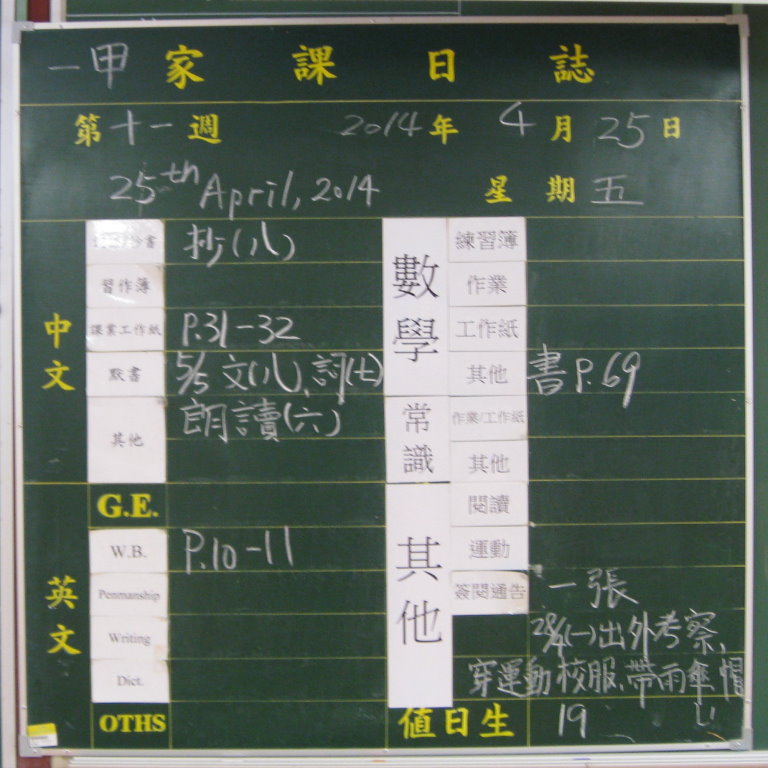 一甲 家課日誌
第十一週 2014年 4月 25日
25th April, 2014 星期五
中文
抄書 抄(八)
習作簿
課業工作紙 P.31-32
默書 5/5 文(八)、詞(七)
其他 朗讀(六)
英文
G.E.
W.B. P.10-11
Penmanship
Writing
Dict.
OTHS
數學
練習簿
作業
工作紙
其他 書P.69
常識
作業/工作紙
其他
其他
閱讀
運動
簽閱通告 一張
28/4(一)出外考察,
穿運動校服、帶雨傘、帽
值日生 19